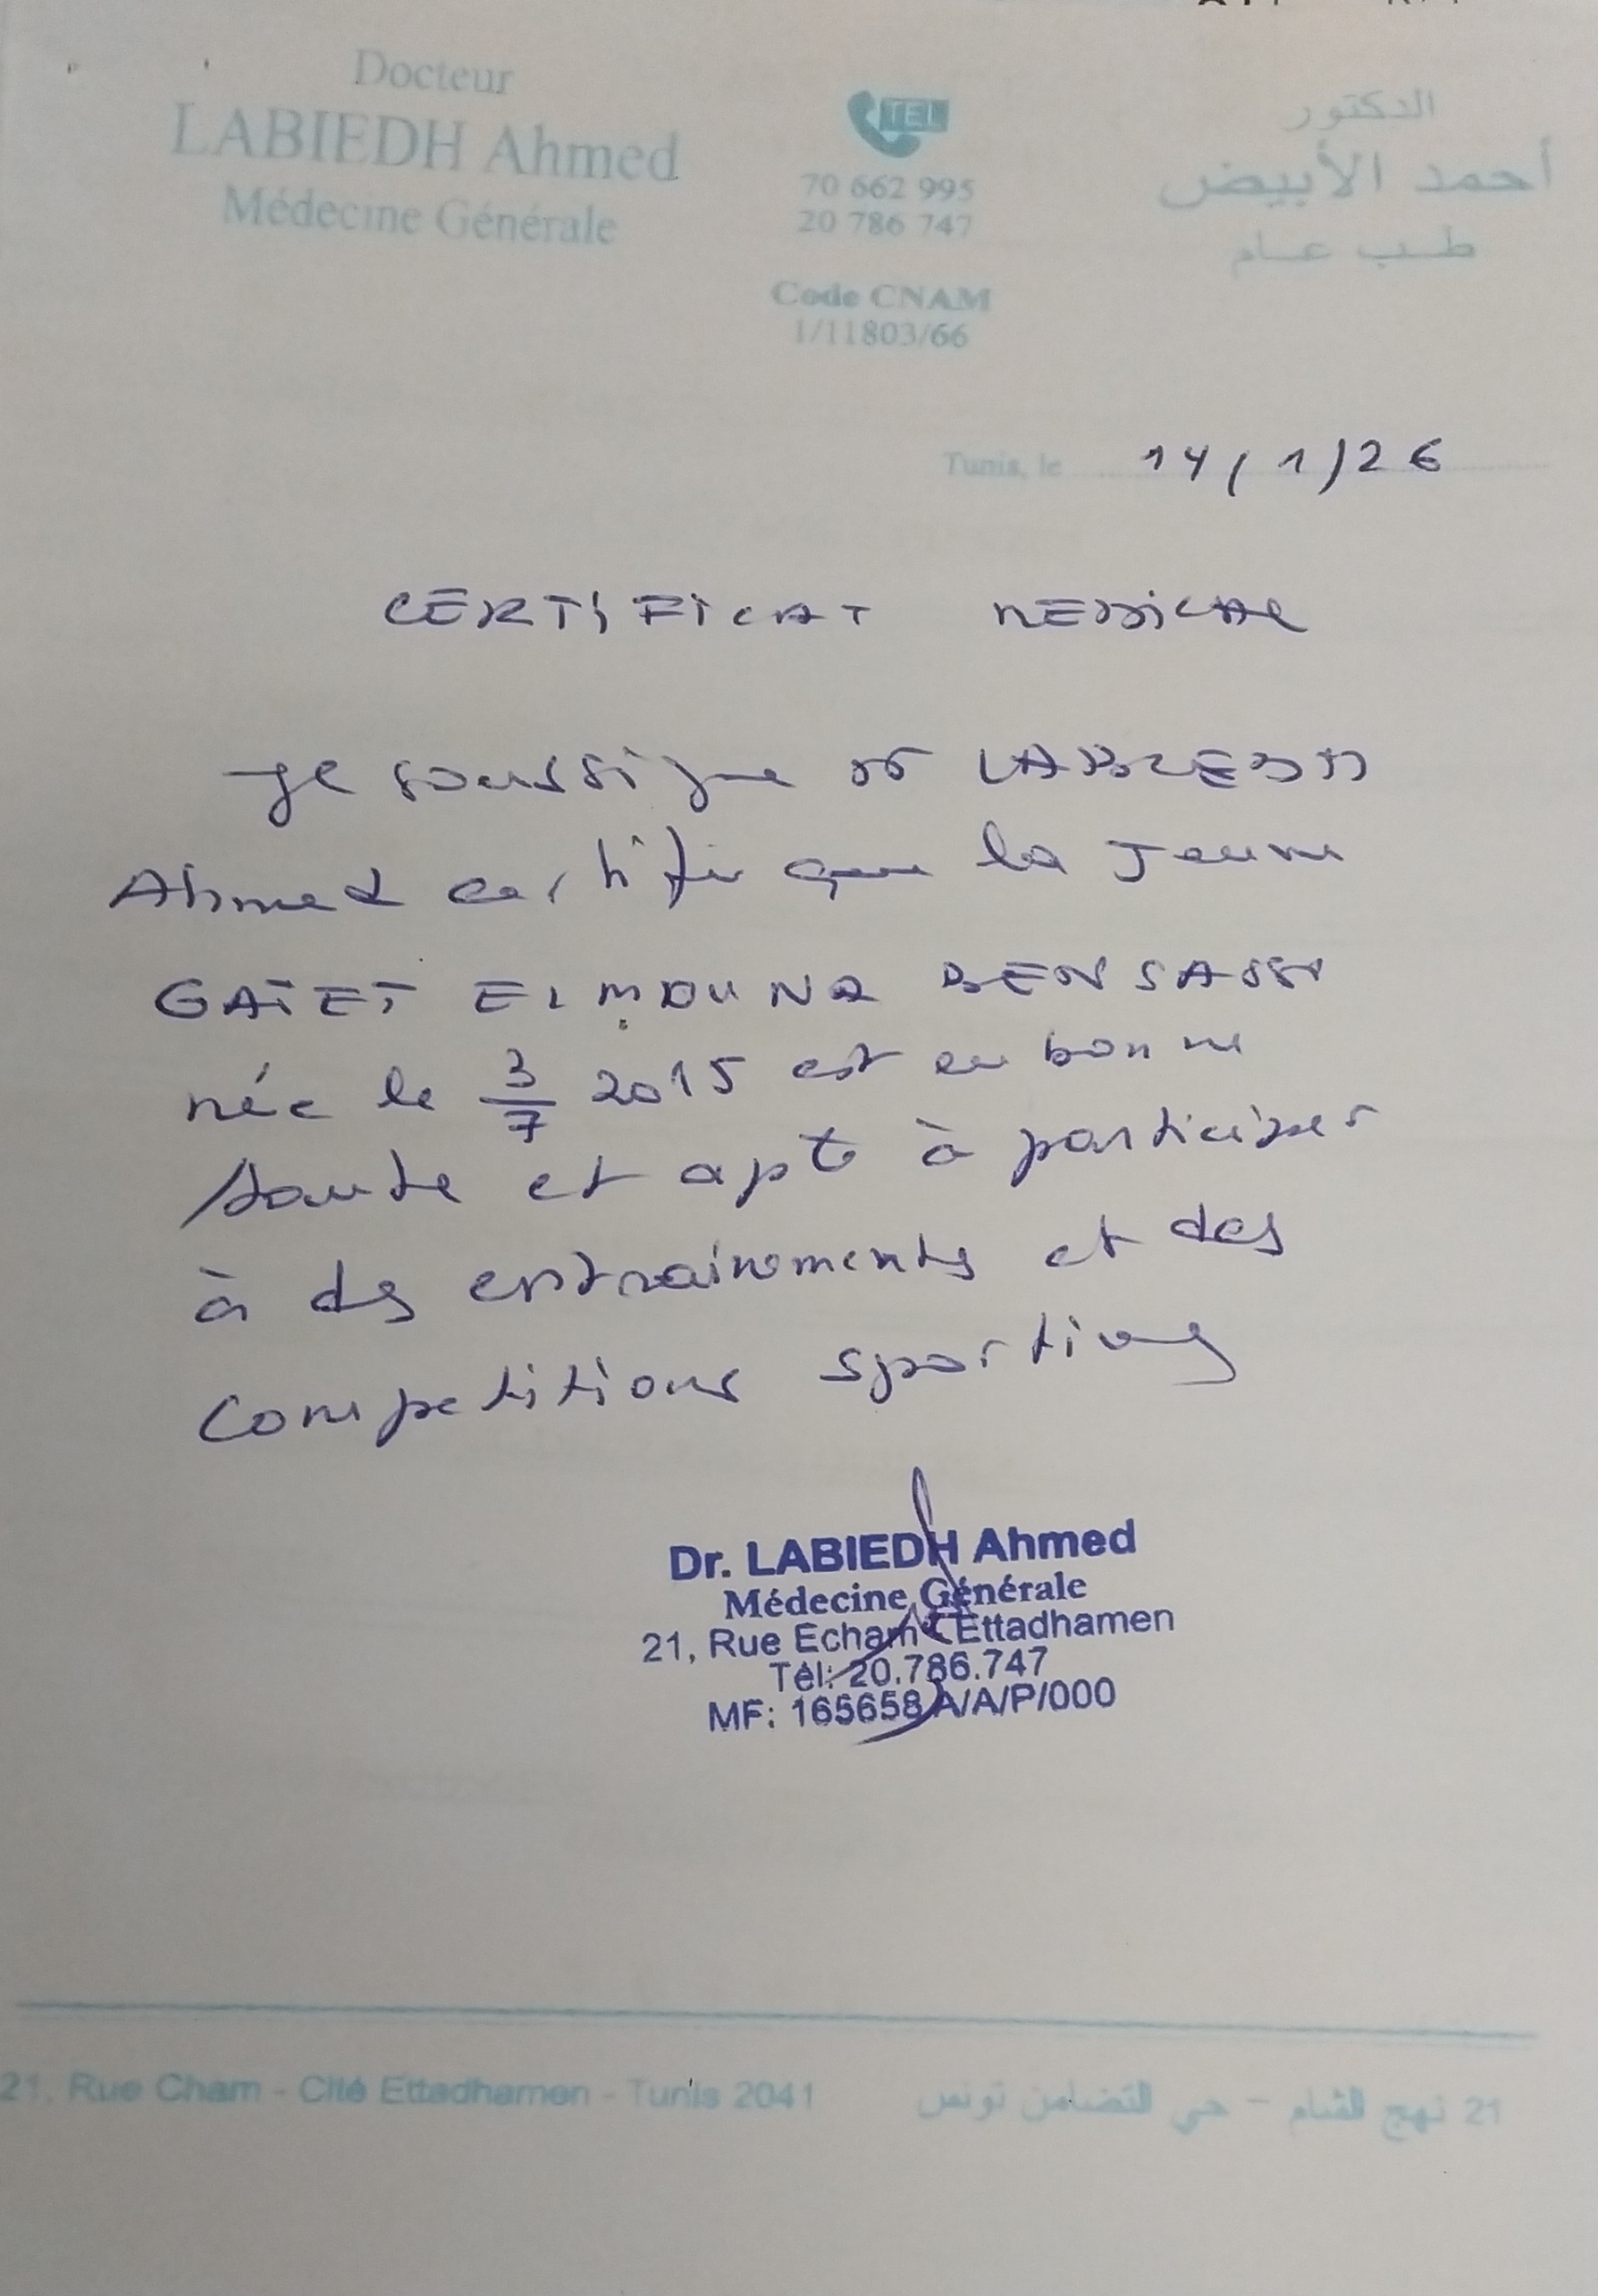 Docteur
LABIEDH Ahmed
Médecine Générale
TEL
70 662 995
20 786 747
Code CNAM
1/11803/66
الدكتور
أحمد الأبيض
طب عام
Tunis, le 14/1/26
CERTIFICAT MEDICAL
Je soussigne Dr LABIEDH
Ahmed certifie que la jeune
GAIET ELMOUNA BEN SASSI
née le 3/7 2015 est en bonne
sante et apte à participer
à des entrainements et des
competitions sportives
Dr. LABIEDH Ahmed
Médecine Générale
21, Rue Echam Ettadhamen
Tél: 20.786.747
MF: 165658 A/A/P/000
21, Rue Cham - Cité Ettadhamen - Tunis 2041
21 نهج الشام - حي التضامن تونس